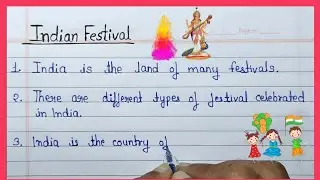 Indian Festival
1. India is the land of many festivals.
2. There are different types of festival celebrated
in India.
3. India is the country of